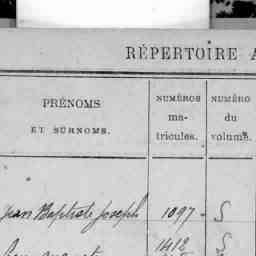 RÉPERTOIRE A
PRÉNOMS
ET SURNOMS.
NUMÉROS
ma-
tricules.
NUMÉRO
du
volume.
Jean Baptiste Joseph 1097 - 5
1412 5